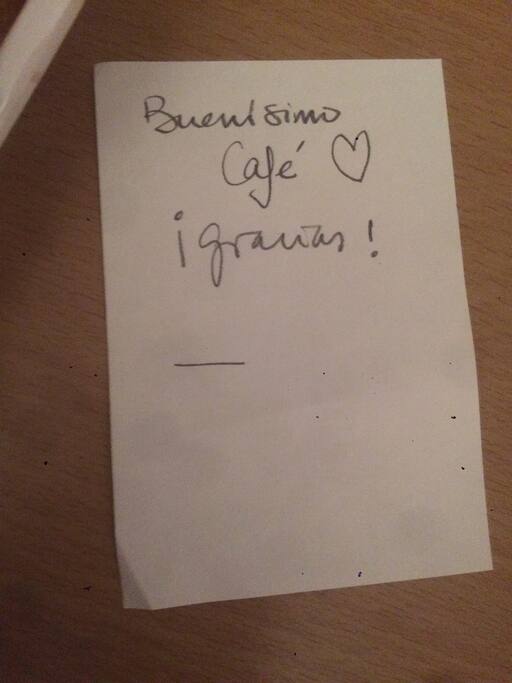 Buenísimo
Café ♡
¡gracias!